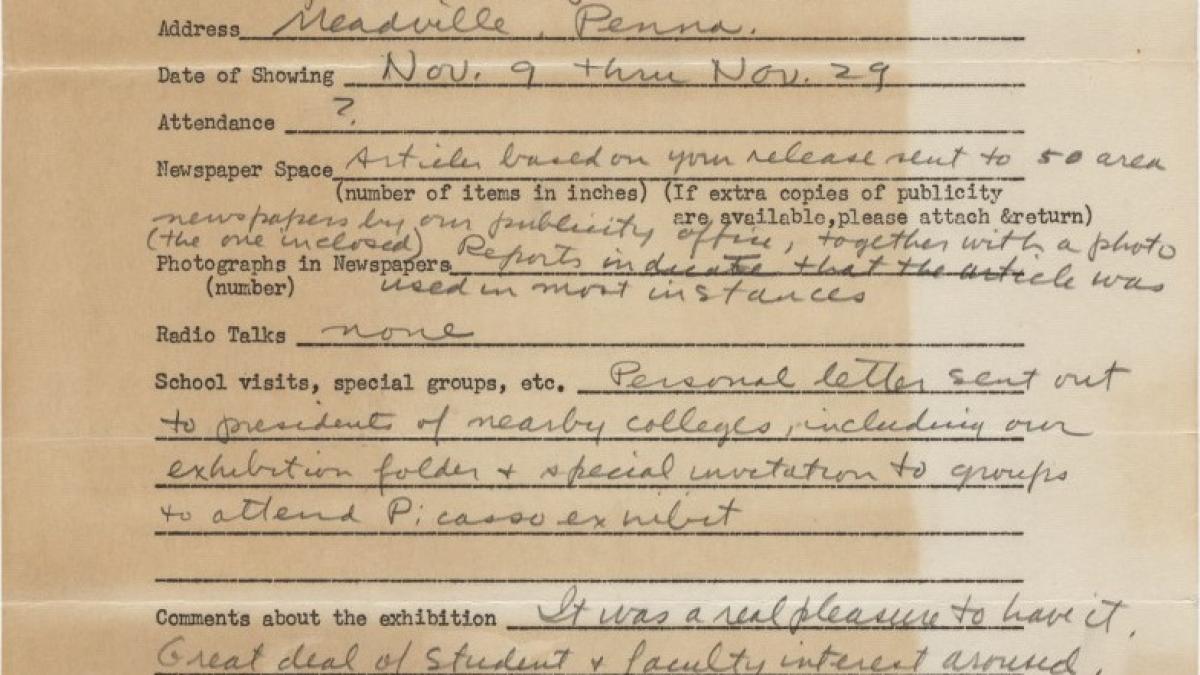 Address Meadville, Penna.
Date of Showing Nov. 9 thru Nov. 29
Attendance ?
Newspaper Space Articles based on your release sent to 50 area
(number of items in inches) (If extra copies of publicity
are available,please attach &return)
newspapers by our publicity office, together with a photo
(the one inclosed) Reports indicate that the article was
Photographs in Newspapers
(number) used in most instances
Radio Talks none
School visits, special groups, etc. Personal letter sent out
to presidents of nearby colleges, including our
exhibition folder + special invitation to groups
to attend Picasso exhibit
Comments about the exhibition It was a real pleasure to have it.
Great deal of student + faculty interest aroused.